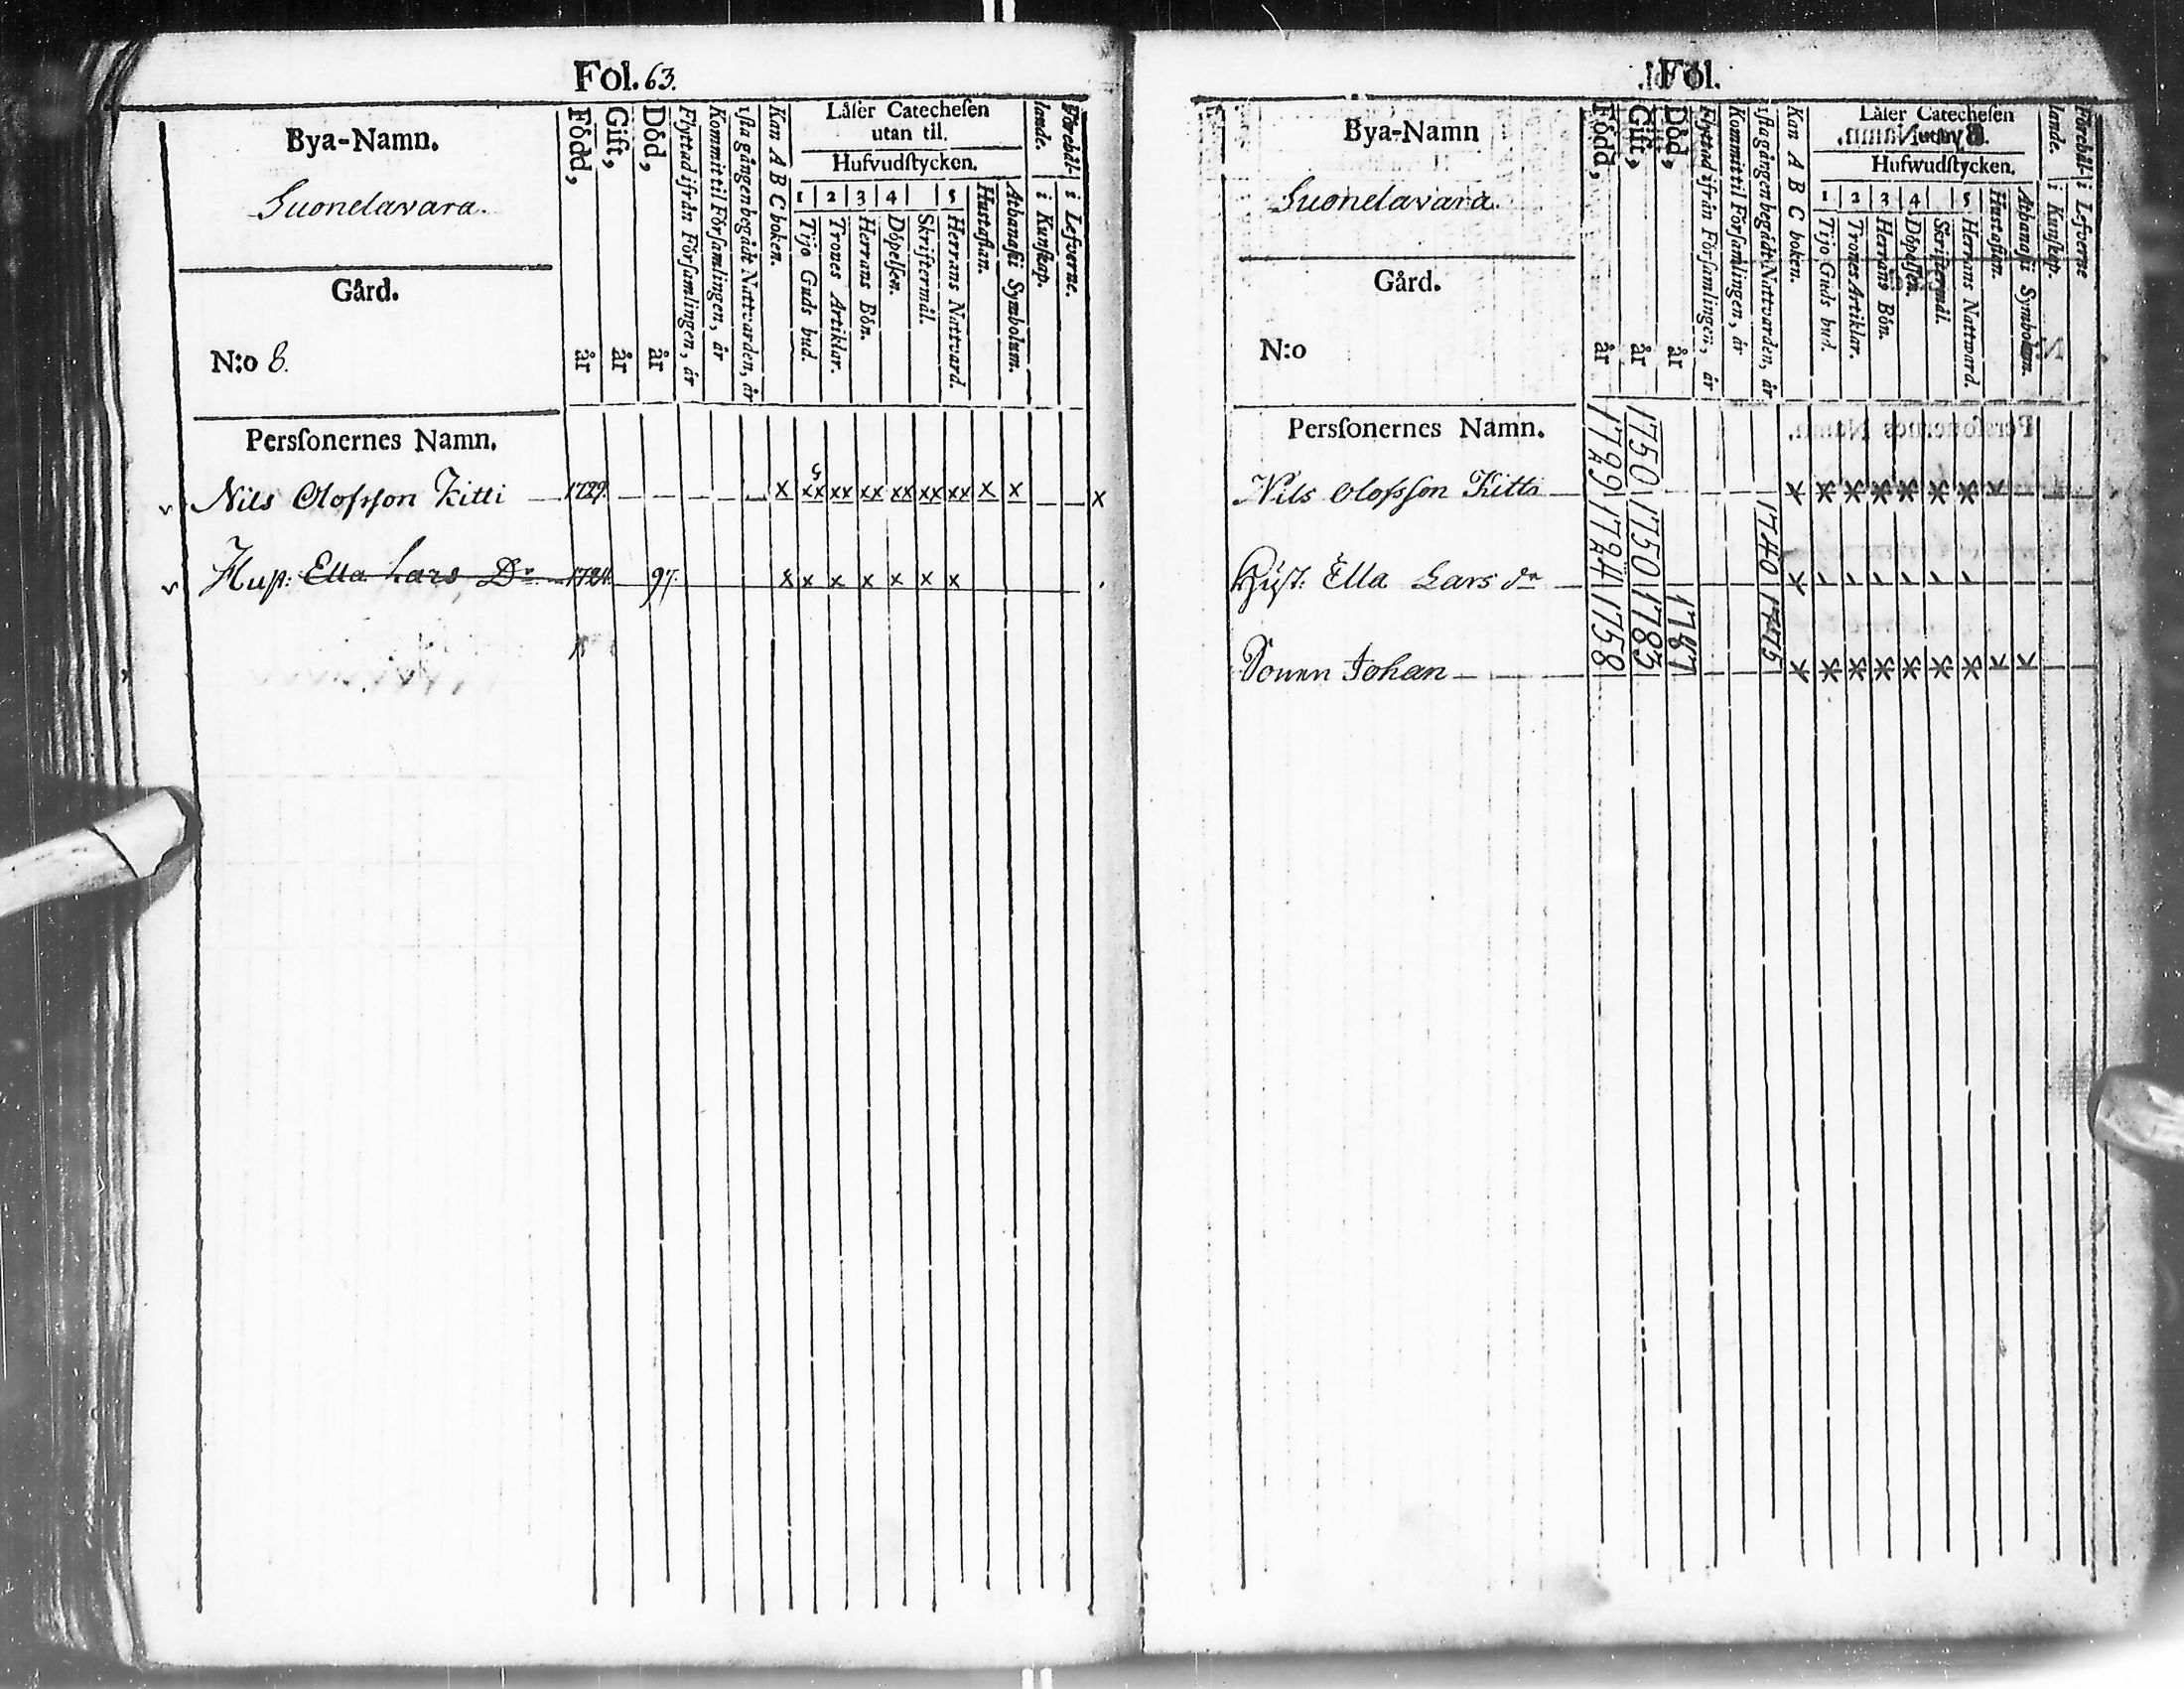 Fol. 63.
Bya-Namn.
Suonelavara.
Gård.
N:o 8.
Född, år
Gift, år
Död, år
Flyttad ifrån Församlingen, år
Kommit til Församlingen, år
1sta gången begådt Nattvarden, år
Kan A B C boken.
Låser Catechesen
utan til.
Hufvudstycken.
1 2 3 4 5
Tijo Guds bud.
Trones Artiklar.
Herrans Bön.
Döpelsen.
Skriftermål.
Herrans Nattvard.
Hustaflan.
Athanasii Symbolum.
Förehål-
lande.
i Kunskap.
i Lefverne.
Perssonernes Namn.
v Nils Olofsson Kitti 1729. x xx xx xx xx xx xx x x x
v Hust: Ella Lars Dr 1724. 97. x x x x x x x
Fol.
Bya-Namn
Suonelavara.
Gård.
N:o
Född, år
Gift, år
Död, år
Flyttad ifrån Församlingen, år
Kommit til Församlingen, år
1sta gången begådt Nattvarden, år
Kan A B C boken.
Låser Catechesen
Hufwudstycken.
1 2 3 4 5
Tijo Guds bud.
Trones Artiklar.
Herrans Bön.
Döpelsen.
Skriftermål.
Herrans Nattvard.
Hustaflan.
Athanasii Symbolum.
Förehål-
lande.
i Kunskap.
i Lefverne
Perssonernes Namn.
Nils Olofsson Kitti 1750
Hust. Ella Lars dr 1724 1750 1740
Johan 1758 1783 1787 1775